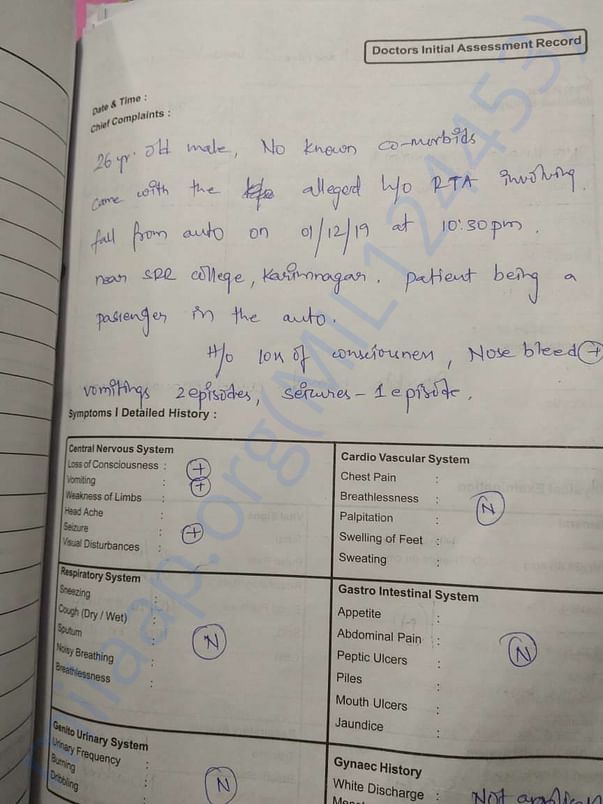 Doctors Initial Assessment Record
Date & Time :
Chief Complaints :
26 yr. old male, No known co-morbids
came with the alleged h/o RTA involving
fall from auto on 01/12/19 at 10:30pm.
near SRR college, Karimnagar. patient being a
pasienger in the auto.
H/o loss of consciousness, Nose bleed (+)
vomitings 2 episodes, seizures - 1 episode.
Symptoms I Detailed History :
Central Nervous System
Loss of Consciousness : (+)
Vomiting : (+)
Weakness of Limbs :
Head Ache :
Seizure : (+)
Visual Disturbances :
Cardio Vascular System
Chest Pain :
Breathlessness :
Palpitation : (N)
Swelling of Feet :
Sweating :
Respiratory System
Sneezing :
Cough (Dry / Wet) :
Sputum : (N)
Noisy Breathing :
Breathlessness :
Gastro Intestinal System
Appetite :
Abdominal Pain :
Peptic Ulcers : (N)
Piles :
Mouth Ulcers :
Jaundice :
Genito Urinary System
Urinary Frequency :
Burning : (N)
Dribbling :
Gynaec History
White Discharge : Not
milaap.org(MIL124453)